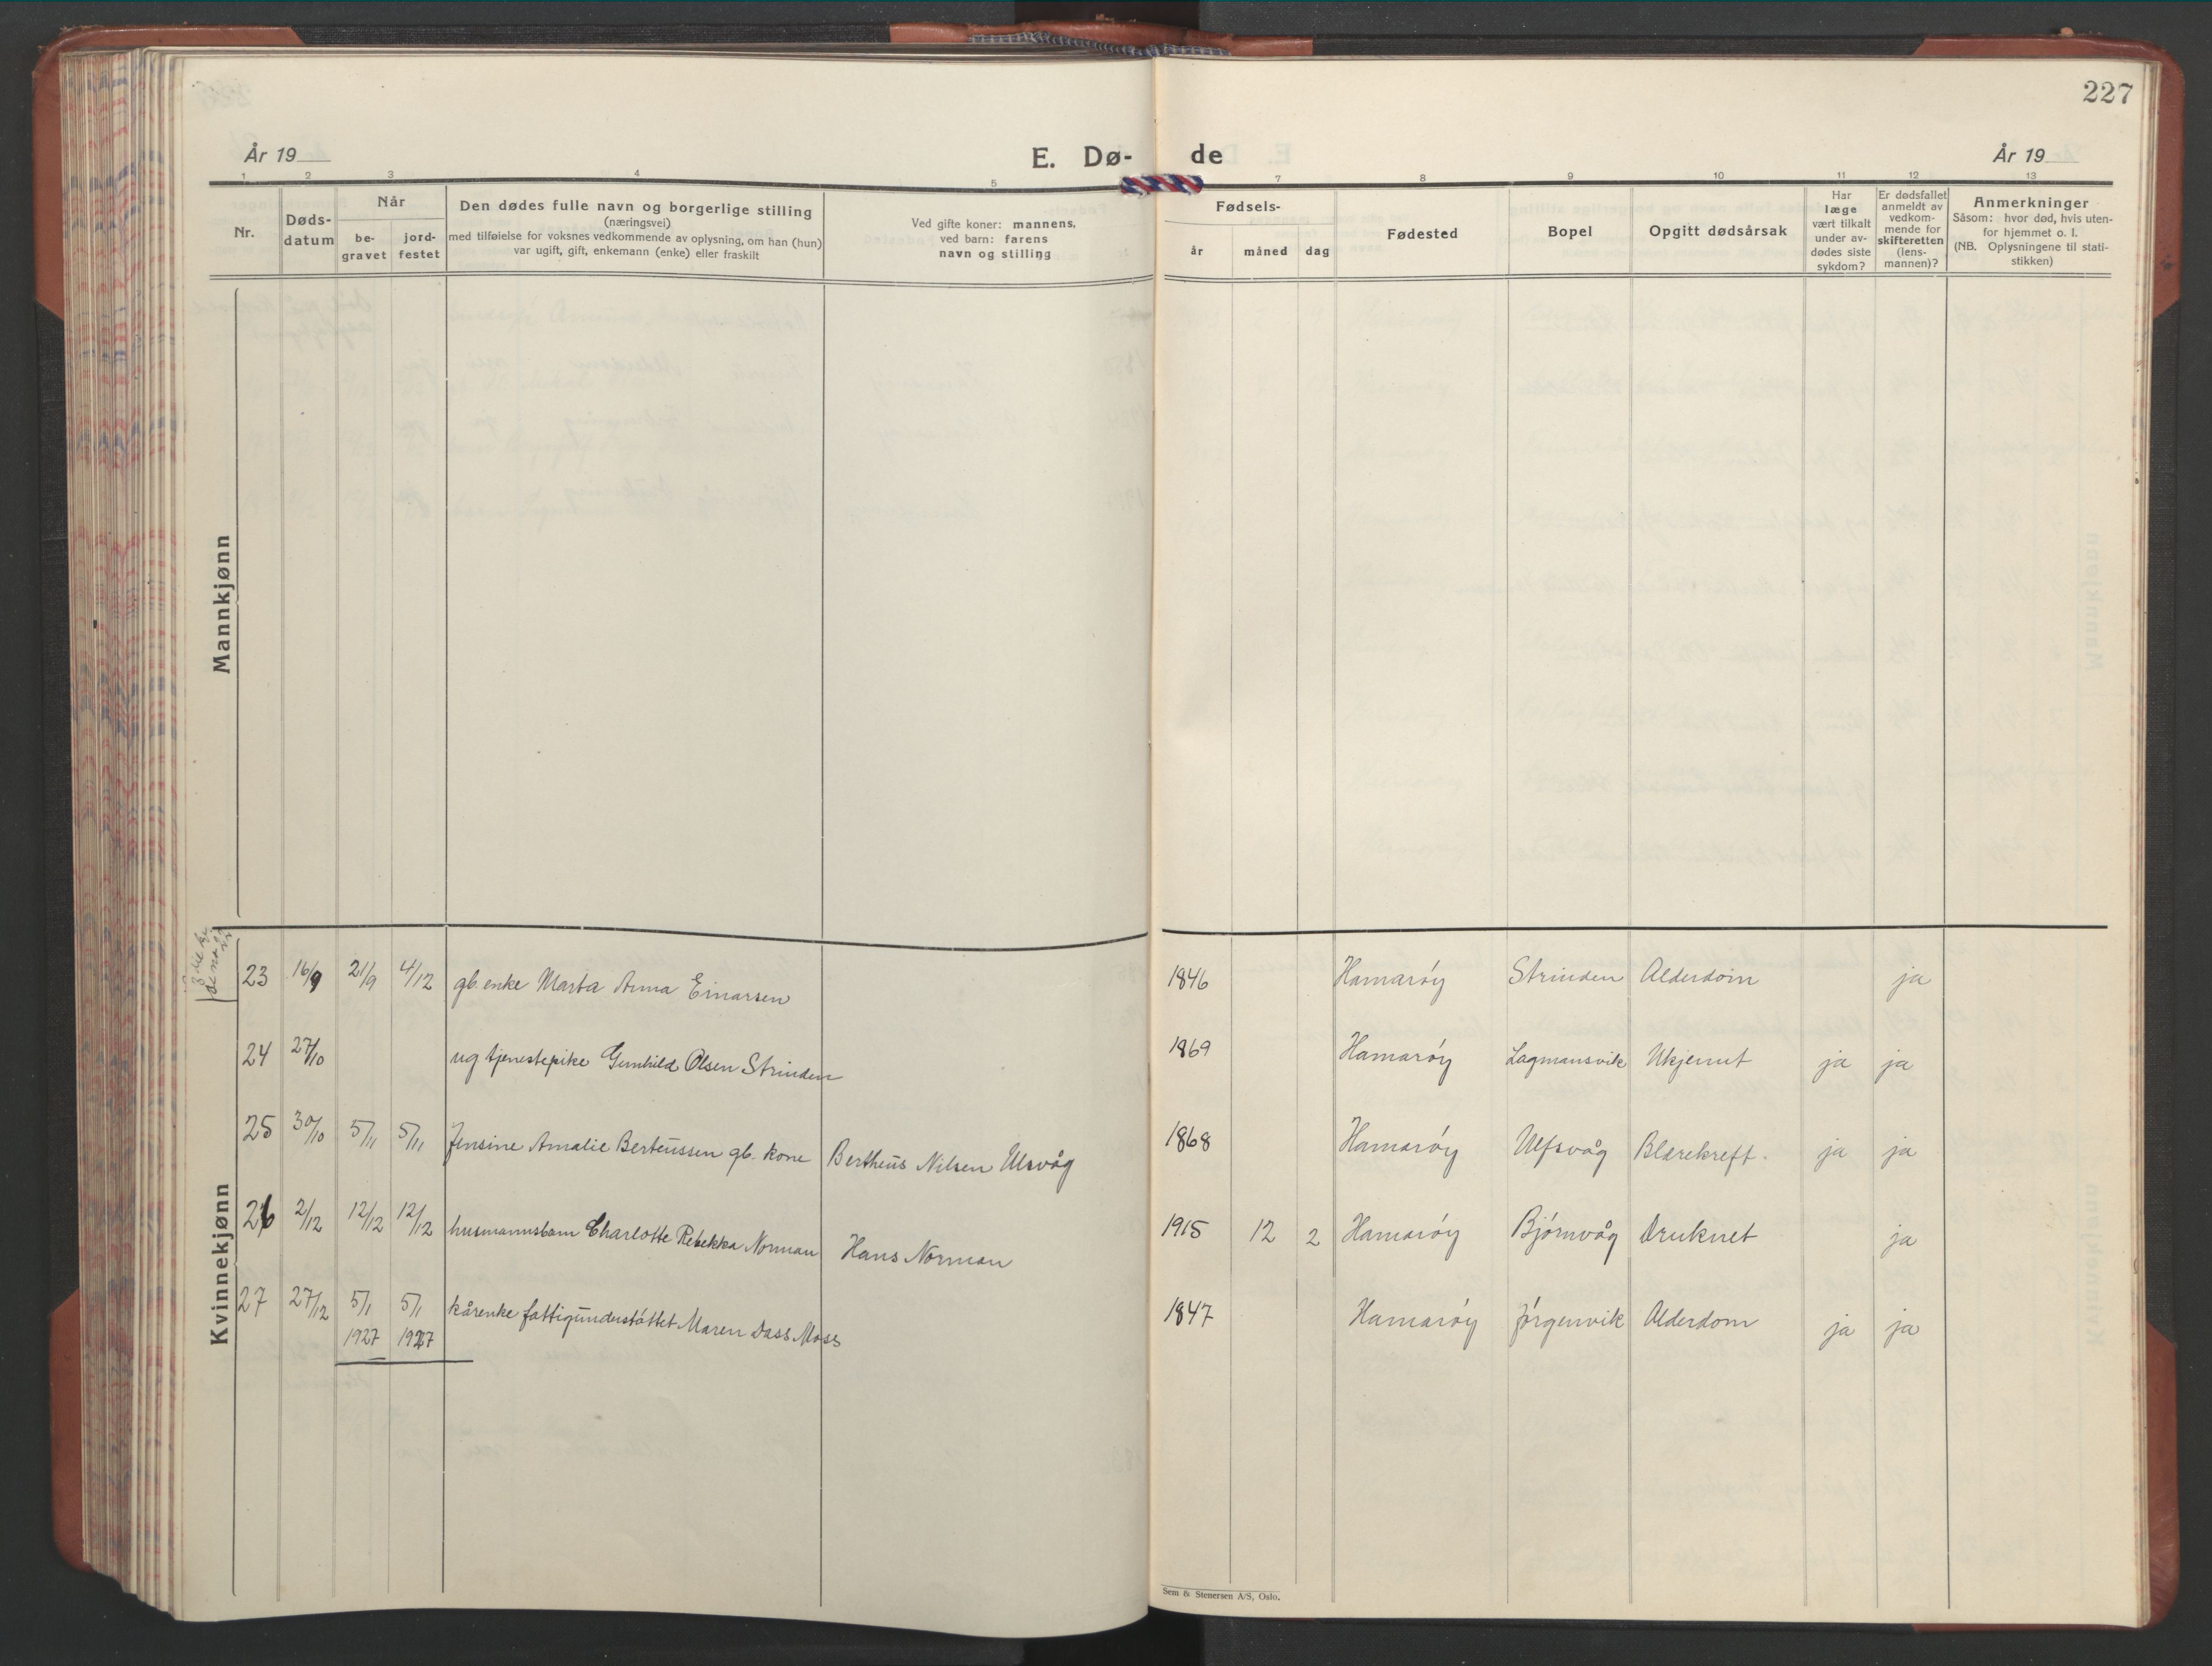 227
År 19
E. Dø-
de
År 19
1
2
3
4
5
7
8
9
10
11
12
13
Nr.
Døds-
datum
Når
be-
gravet
jord-
festet
Den dødes fulle navn og borgerlige stilling
(næringsvei)
med tilføielse for voksnes vedkommende av oplysning, om han (hun)
var ugift, gift, enkemann (enke) eller fraskilt
Ved gifte koner: mannens,
ved barn: farens
navn og stilling
Fødsels-
år
måned
dag
Fødested
Bopel
Opgitt dødsårsak
Har
læge
vært tilkalt
under av-
dødes siste
sykdom?
Er dødsfallet
anmeldt av
vedkom-
mende for
skifteretten
(lens-
mannen)?
Anmerkninger
Såsom: hvor død, hvis uten-
for hjemmet o. l.
(NB. Oplysningene til stati-
stikken)
Mannkjønn
Kvinnekjønn
23 16/9 21/9 4/12 gb. enke Marta Anna Einarsen 1846 Hamarøy Strinden Alderdom ja
24 27/10 ug tjenestepike Gunhild Olsen Strinden 1869 Hamarøy Lagmansvik Ukjennt ja ja
25 30/10 5/11 5/11 Jensine Amalie Berteussen gb. kone Bertheus Nilsen Ulsvåg 1868 Hamarøy Ulfsvåg Blærekreft. ja ja
26 2/12 12/12 12/12 husmannsbarn Charlotte Rebekka Norman Hans Norman 1915 12 2 Hamarøy Bjórnvåg Druknet ja
27 27/12 5/1 5/1 kårenke fattigunderstóttet Maren Dass Moss 1847 Hamarøy Jórgenvik Alderdom ja ja
1927 1927
Sem & Stenersen A/S, Oslo.